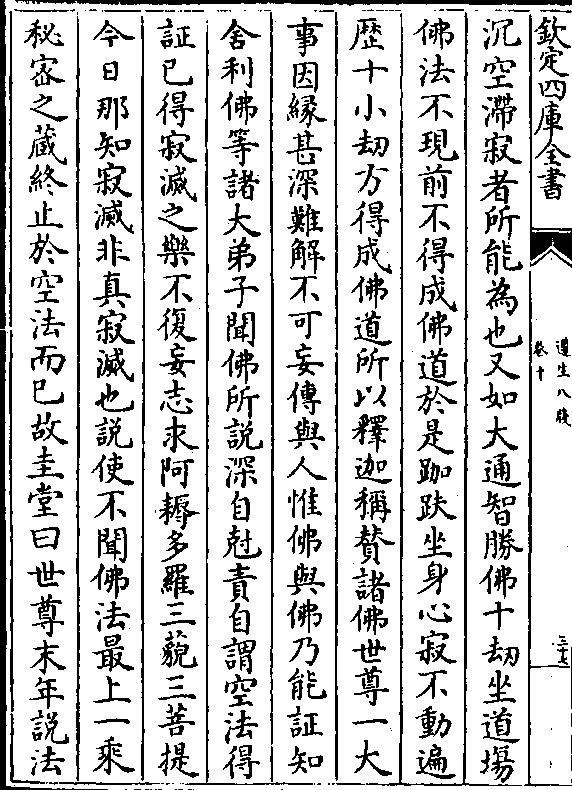 欽定四庫全書
遵生八牋
卷十
三十七
沉空滯寂者所能為也又如大通智勝佛十劫坐道塲
佛法不現前不得成佛道於是跏趺坐身心寂不動遍
歴十小劫方得成佛道所以釋迦稱賛諸佛世尊一大
事因縁甚深難解不可妄傳與人惟佛與佛乃能証知
舍利佛等諸大弟子聞佛所説深自尅責自謂空法得
証已得寂滅之樂不復妄志求阿耨多羅三藐三菩提
今日那知寂滅非真寂滅也説使不聞佛法最上一乘
秘宻之蔵終止於空法而已故圭堂曰世尊末年説法